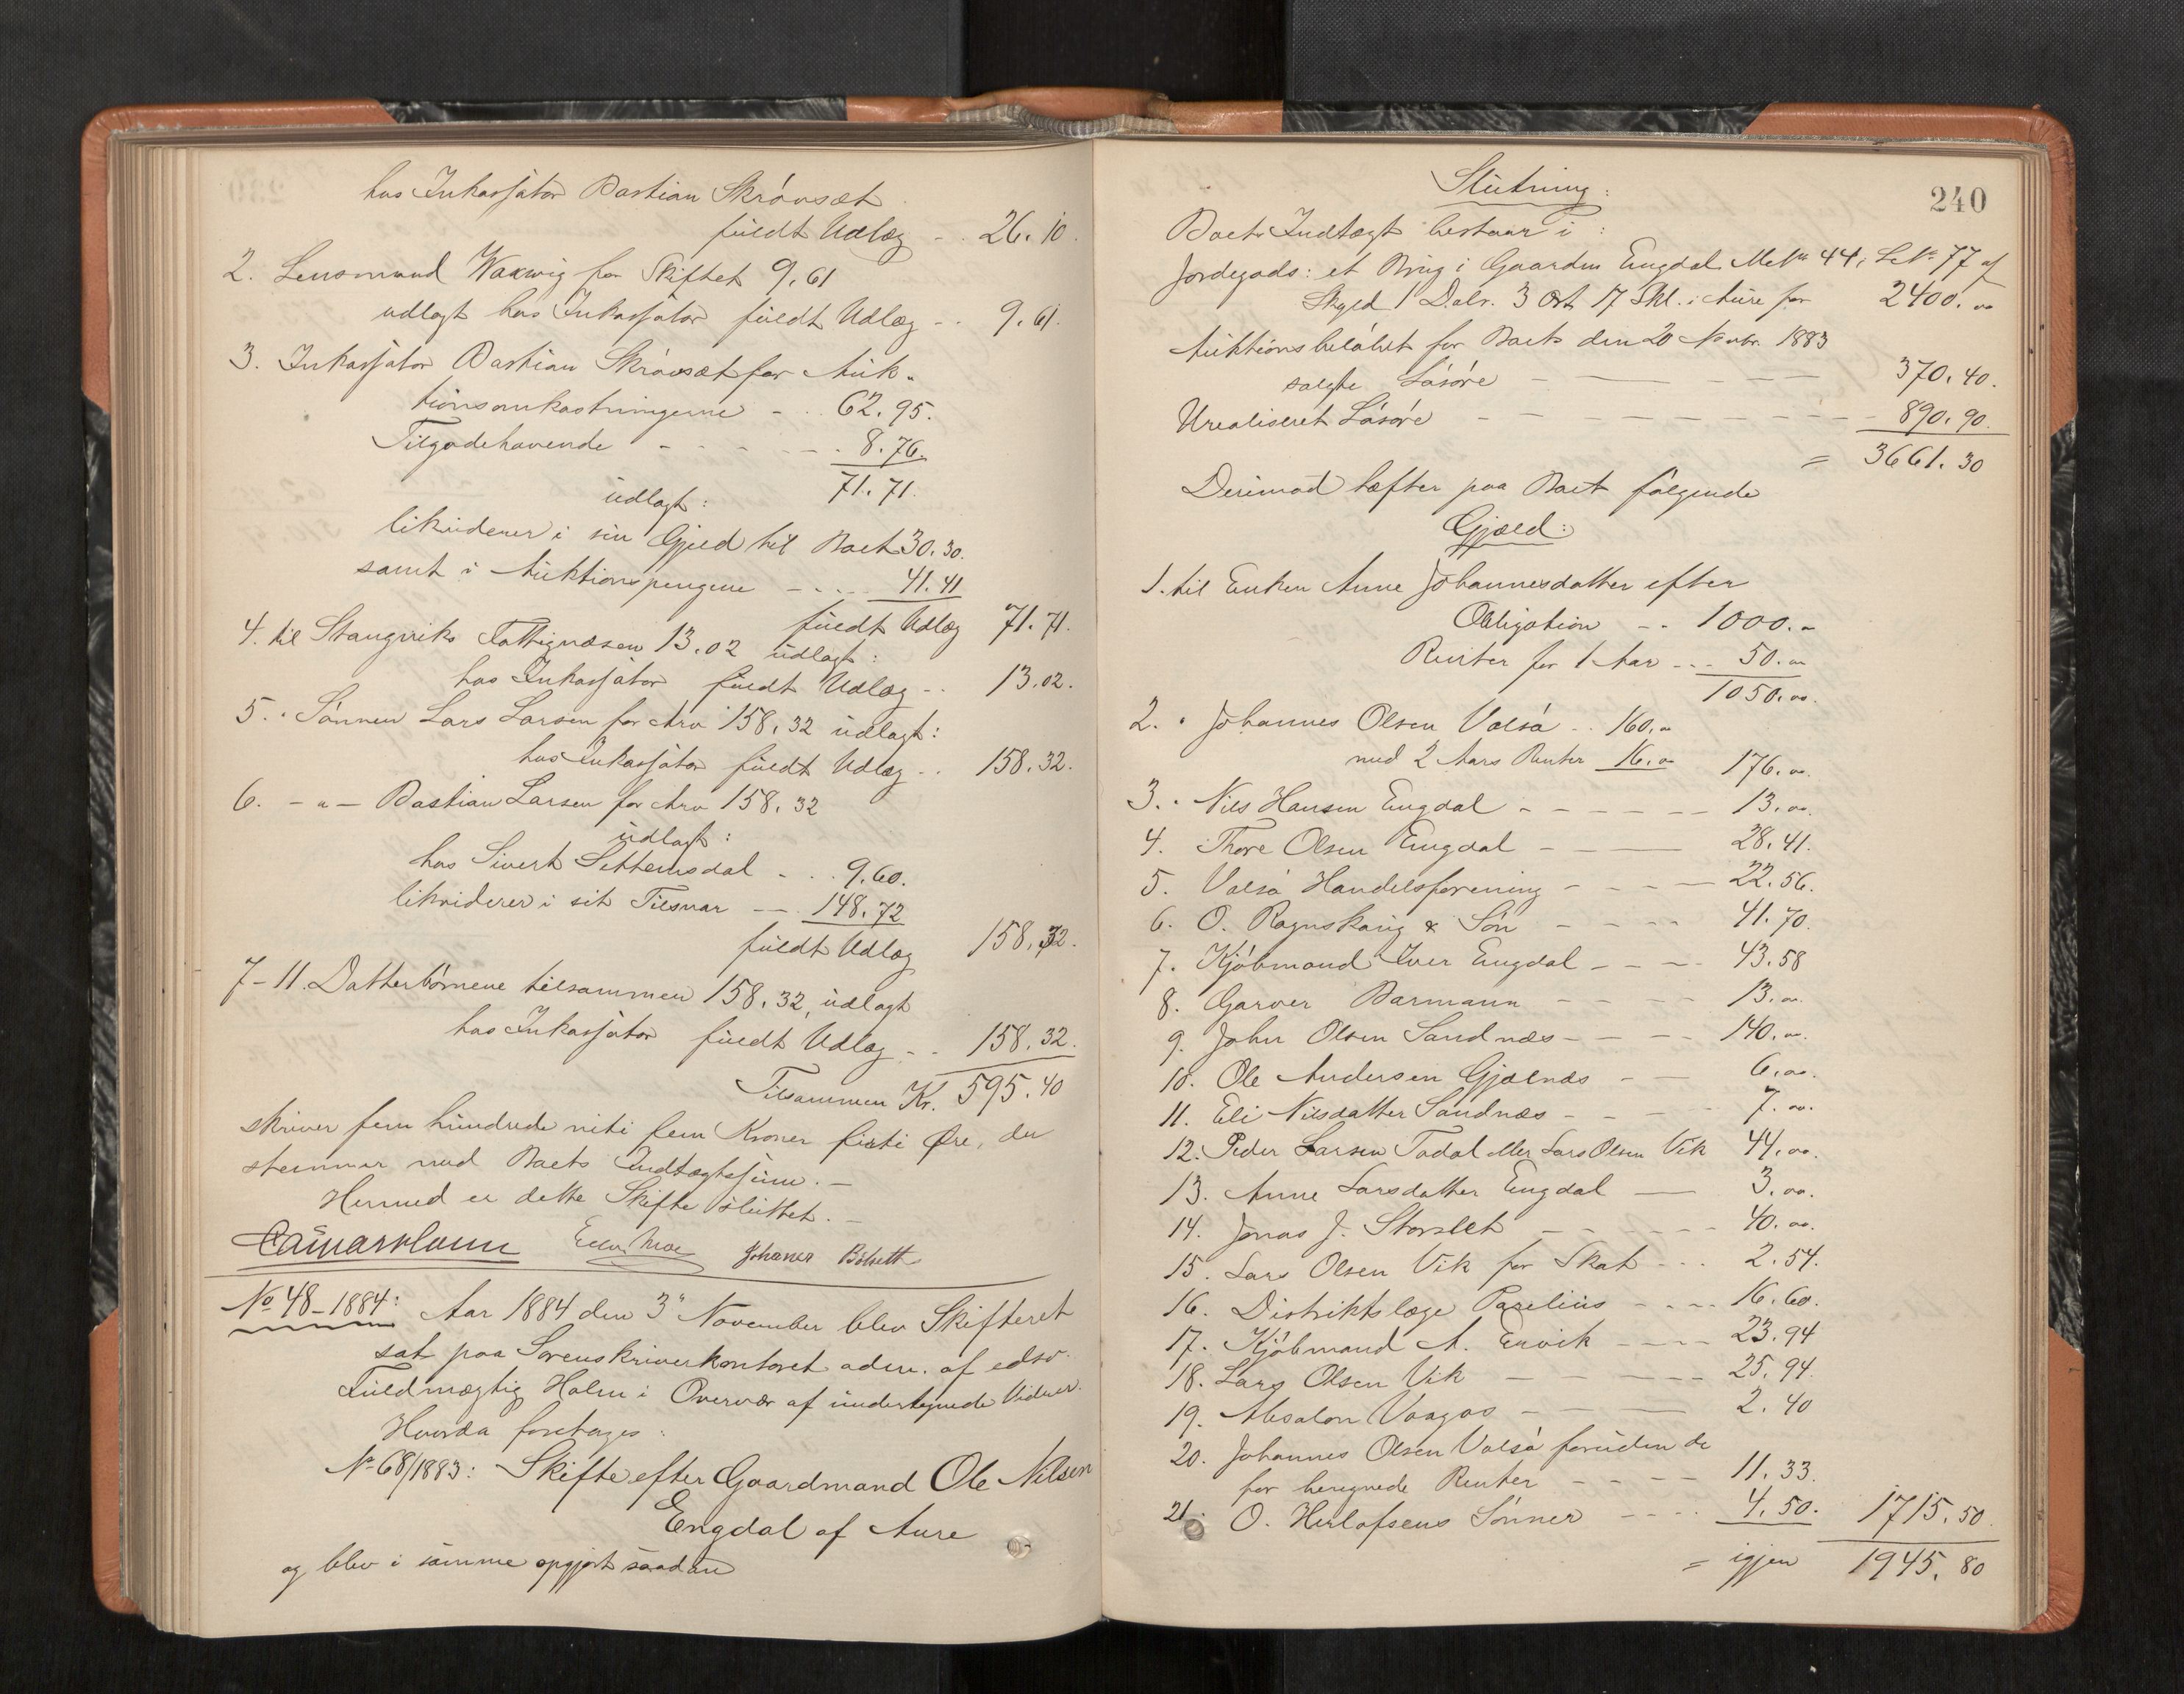 hos Inkassator Bastian Skrövset
fuldt Udlæg - . 26. 10.
2. Lensmand Waxwig for Skiftet 9,61
udlagt hos Inkassator fuldt Udlæg - . 9.61.
3. Inkassator Bastian Skrövset for Auk-
tionsomkostningerne - . . 62.95.
Tilgodehavende - - - - - . 8.76.
71.71.
udlagt:
likviderer i sin Gjæld til Boet 30.30.
samt i Auktionspengene - . . . 41.41
fuldt Udlæg 71.71.
4. til Stangviks Fattigvæsen 13.02 udlagt:
hos Inkassator fuldt Udlæg - . 13.02.
5. " Sönnen Lars Larsen for Arv 158,32 udlagt:
hos Inkassator fuldt Udlæg . . 158.32.
6. - " - Bastian Larsen for Arv 158,32
udlagt:
hos Sivert Settemsdal - . . 9.60.
likviderer i sit Tilsvar - - 148.72
fuldt Udlæg 158,32.
7-11. Datterbörnene tilsammen 158.32, udlagt
hos Inkassator fuldt Udlæg - . 158.32.
Tilsammen Kr. 595.40
skriver fem hundrede niti fem Kroner firti Øre, der
stemmer med Boets Indtægtssum. -
Hermed er dette Skifte sluttet. -
Johanes
No 48-1884: Aar 1884 den 3" November blev Skifteret
sat paa Sorenskriverkontoret adm. af edsv.
Fuldmægtig Holm i Overvær af undertegnede Vidner.
Hvorda foretages:
No 68/1883: Skifte efter Gaardmand Ole Nilsen
Engdal af Aure
og blev i samme opgjort saadan
240
Slutning:
Boets Indtægt bestaar i:
Jordegods: et Brug i Gaarden Engdal Mt No 44, L No 77 af
Skyld 1 Dalr. 3 Ort 17 Skl. i Aure for 2400. "
Auktionsbelöbet for Boets den 20 Novbr. 1883
solgte Lösöre - - - - 370.40.
Urealiseret Lösöre - - - - - - - 890.90.
= 3661.30
Derimod hæfter paa Boet fölgende
Gjæld:
1. til Enken Anne Johannesdatter efter
Obligation - . 1000. "
Renter for 1 Aar - - . 50. "
1050. "
2. " Johannes Olsen Valsö . . 160. "
med 2 Aars Renter 16. " 176. "
3. " Nils Hansen Engdal - - - - - - 13. "
4. Thore Olsen Engdal - - - 28.41.
5. Valsö Handelsforening - - - - 22.56.
6. O. Ragnskaug & Sön - - - - 41.70.
7. Kjöbmand Iver Engdal - - - 43.58
8. Garver Barmann - - - - 13. "
9. John Olsen Sandnæs - - - - 140. "
10. Ole Andersen Gjælnæs - - 6. "
11. Eli Nilsdatter Sandnæs - - - - 7. "
12. Peder Larsen Todal eller Lars Olsen Vik 44. "
13. Anne Larsdatter Engdal - 3. "
14. Jonas J. Storslet - - - - - 40. "
15. Lars Olsen Vik for Skat - - . 2.54.
16. Distriktslæge Parelius - . - . 16.60.
17. Kjöbmand A. Ervik - - - - 23.94
18. Lars Olsen Vik - - - - - - 25.94.
19. Absalon Vaagos - - - - 2.40
20. Johannes Olsen Valsö foruden de
for beregnede Renter - - - - 11.33.
21. O. Herlofsens Sönner - - - . 4.50. 1715.50.
= igjen 1945.80